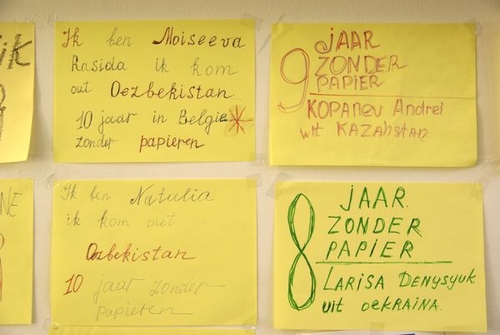 iK
Ik ben Moiseeva
Rasida ik kom
out Oezbekistan
10 jaar in Belgie
zonder papieren
9 JAAR
ZONDER
PAPIER
KOPANEV Andrei
wit KAZAHSTAN
NE
Ik ben Natulia
ik kom out
Oezbekistan
10 jaar zonder
papieren
8 JAAR.
ZONDER
PAPIER
LARISA DENYSYUK
uit OEKRAINA.